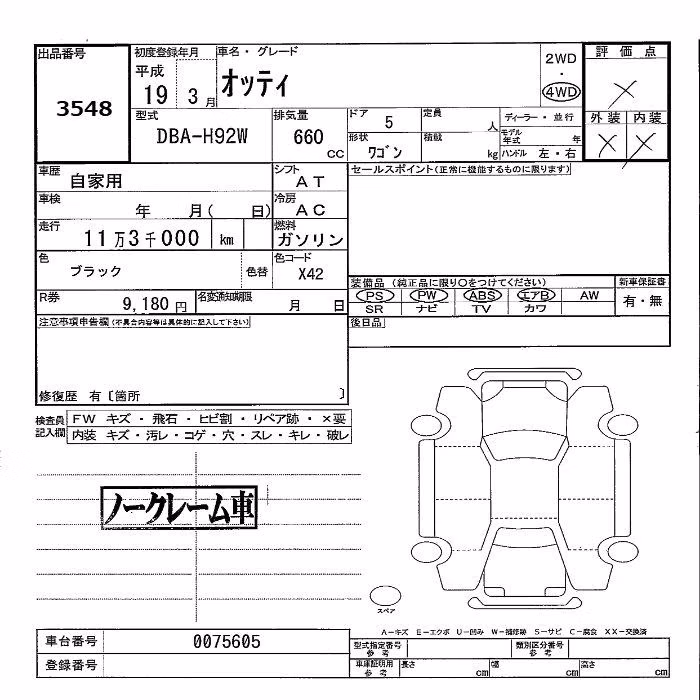 出品番号
3548
初度登録年月
平成
19 3 月
車名・グレード
オッティ
2WD
・
4WD
評価点
×
外装 内装
× ×
型式
DBA-H92W
排気量
660
cc
ドア
5
定員
人
形状
ワゴン
積載
kg
ディーラー・並行
モデル年式
年
ハンドル 左・右
車歴
自家用
シフト
AT
車検
年 月( 日)
冷房
AC
走行
11万3千000 km
燃料
ガソリン
色
ブラック
色替
色コード
X42
R券
9,180円
名変通知期限
月 日
セールスポイント(正常に機能するものに限ります)
装備品 (純正品に限り○をつけてください)
新車保証書
PS PW ABS エアB AW
有・無
SR ナビ TV カワ
後日品
注意事項申告欄(不具合内容等は具体的に記入して下さい)
修復歴 有〔箇所 〕
検査員記入欄
FW キズ・飛石・ヒビ割・リペア跡・×要
内装 キズ・汚レ・コゲ・穴・スレ・キレ・破レ
ノークレーム車
スペア
A－キズ E－エクボ U－凹み W－補修跡 S－サビ C－腐食 XX－交換済
車台番号
0075605
登録番号
型式指定番号
参考
類別区分番号
参考
車庫証明用
参考
長さ
cm
幅
cm
高さ
cm